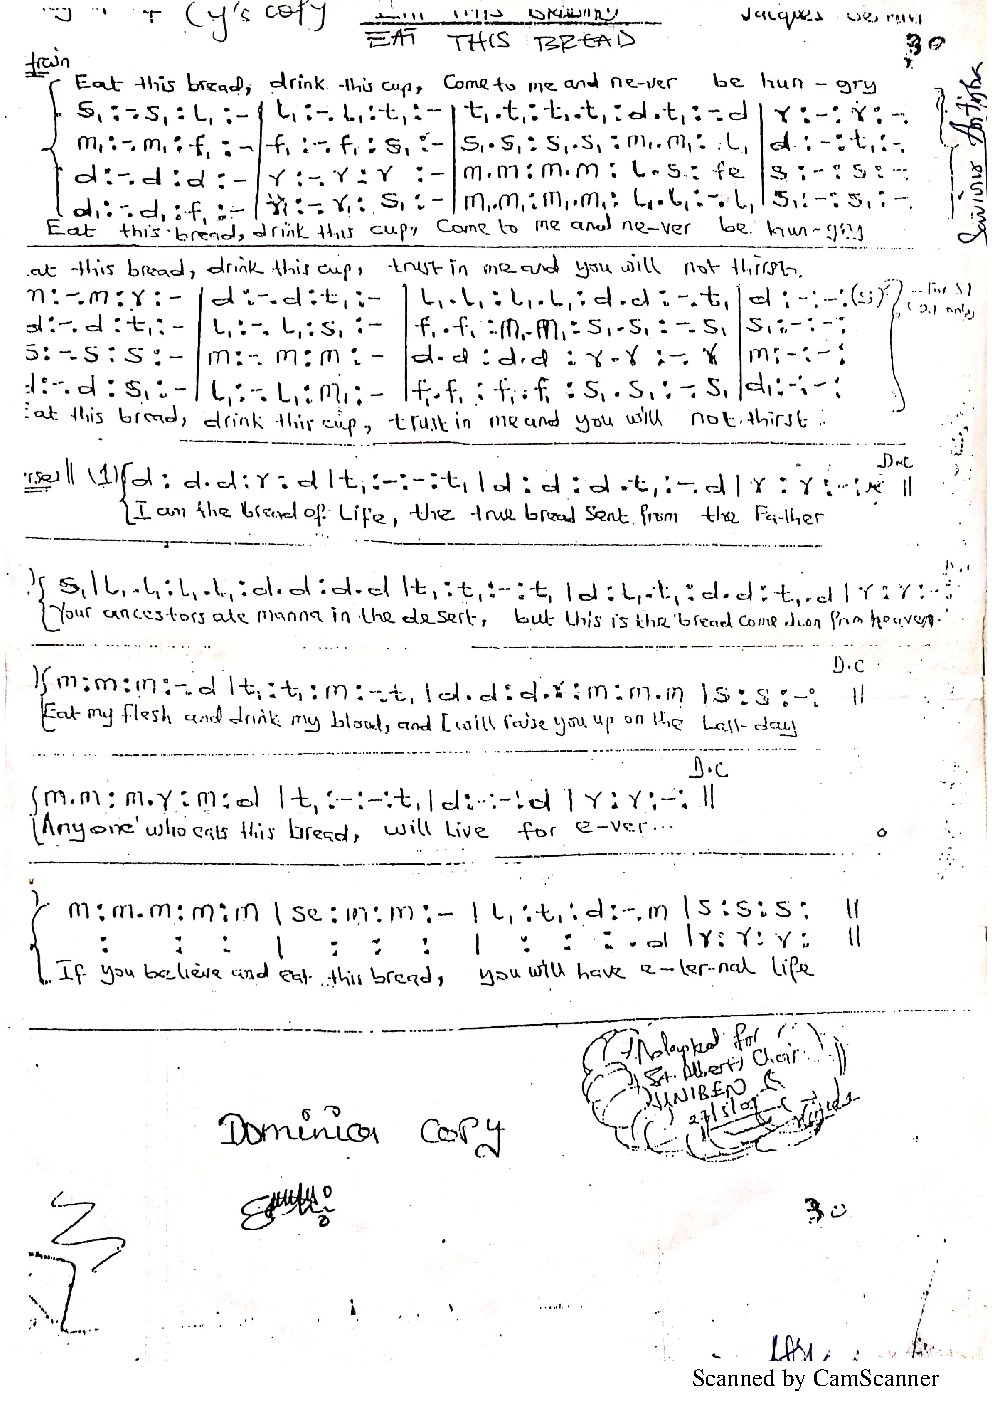 (y's copy
EAT THIS BREAD
30
Eat this bread, drink this cup, Come to me and ne-ver be hun-gry
s₁:-.s₁:l₁:-|l₁:-.l₁:t₁:-|t₁.t₁:t₁.t₁:d.t₁:-.d|r:-:r:-
m₁:-.m₁:f₁:-|f₁:-.f₁:s₁:-|s₁.s₁:s₁.s₁:m₁.m₁:.l₁|d:-:t₁:-
d:-.d:d:-|r:-.r:r:-|m.m:m.m:l.s:fe|s:-:s:-
d₁:-.d₁:f₁:-|r₁:-.r₁:s₁:-|m₁.m₁:m₁.m₁:l₁.l₁:-.l₁|s₁:-:s₁:-
Eat this bread, drink this cup, Come to me and ne-ver be hun-gry
at this bread, drink this cup, trust in me and you will not thirst.
:-.m:r:-|d:-.d:t₁:-|l₁.l₁:l₁.l₁:d.d:-.t₁|d:-:-:(s)
d:-.d:t₁:-|l₁:-.l₁:s₁:-|f₁.f₁:m₁.m₁:s₁.s₁:-.s₁|s₁:-:-:
s:-.s:s:-|m:-.m:m:-|d.d:d.d:r.r:-.r|m:-:-:
d:-.d:s₁:-|l₁:-.l₁:m₁:-|f₁.f₁:f₁.f₁:s₁.s₁:-.s₁|d₁:-:-:
Eat this bread, drink this cup, trust in me and you will not thirst
D.C
(1){d:d.d:r:d|t₁:-:-:t₁|d:d:d.t₁:-.d|r:r:-: ||
I am the bread of Life, the true bread sent from the Father
{s₁|l₁.l₁:l₁.l₁:d.d:d.d|t₁:t₁:-:t₁|d:l₁.t₁:d.d:t₁.d|r:r:-
Your ancestors ate manna in the desert, but this is the bread come down from heaven.
D.C
{m:m:m:-.d|t₁:t₁:m:-.t₁|d.d:d.r:m:m.m|s:s:-: ||
Eat my flesh and drink my blood, and I will raise you up on the Last-day
D.C
{m.m:m.r:m:d|t₁:-:-:t₁|d:-:-:d|r:r:-: ||
Anyone who eats this bread, will live for e-ver...
m:m.m:m:m|se:m:m:-|l₁:t₁:d:-.m|s:s:s: ||
: : : | : : : | : : :-.d|r:r:r: ||
If you believe and eat this bread, you will have e-ter-nal life
Adapted for
St. Alberts Choir
UNIBEN
Dominica copy
30
Scanned by CamScanner